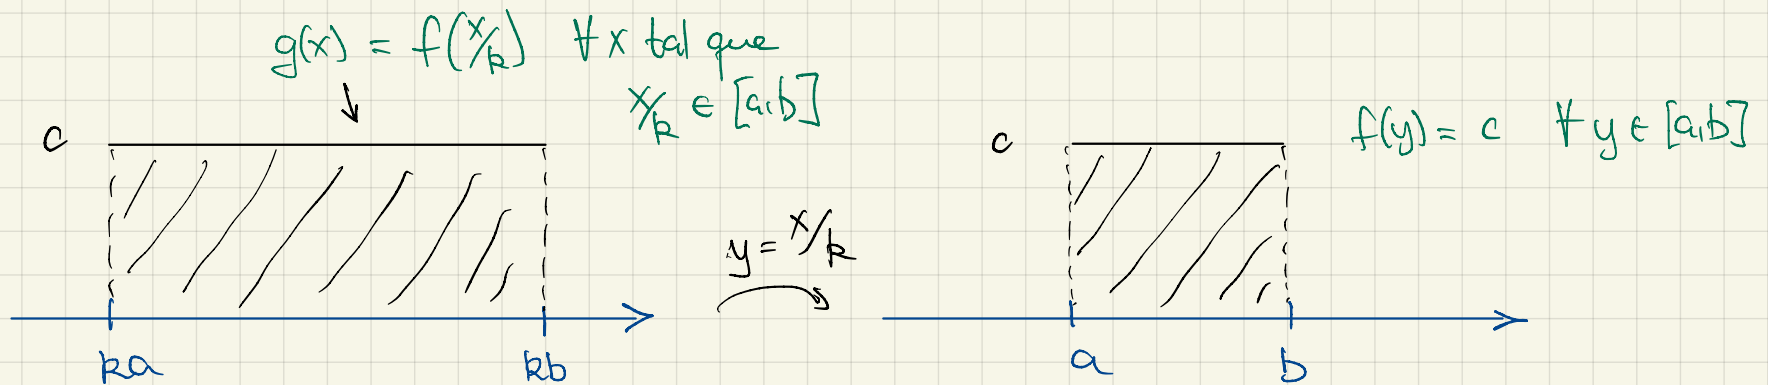 g(x) = f(x/k) ∀ x tal que
x/k ∈ [a,b]
c
ka
kb
y = x/k
c
f(y) = c ∀ y ∈ [a,b]
a
b